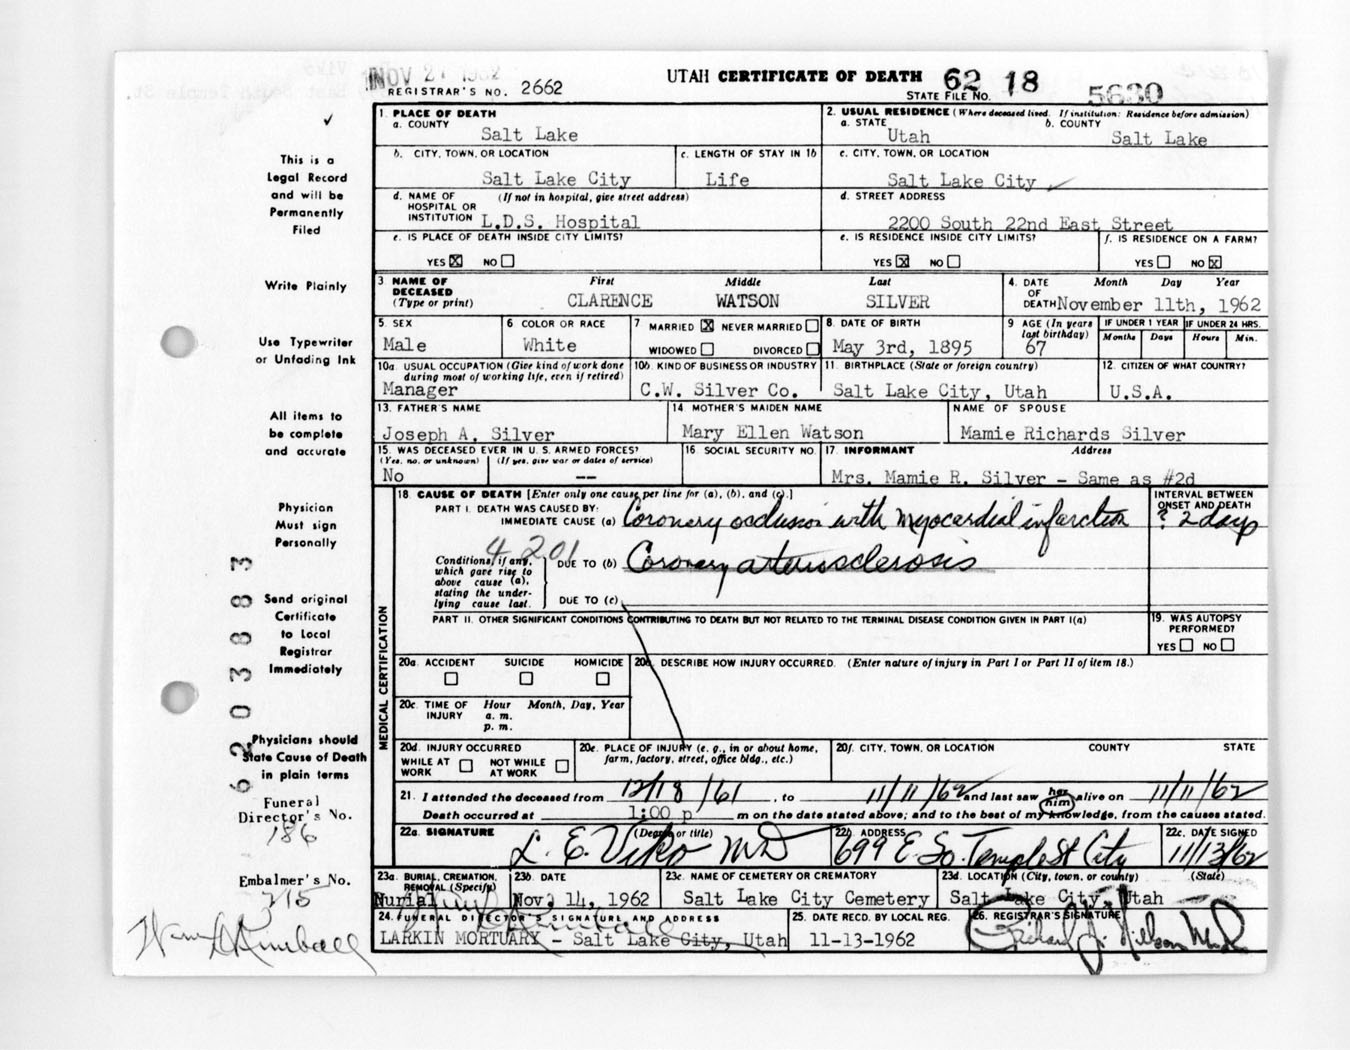 NOV 21 1962
REGISTRAR'S NO. 2662
UTAH CERTIFICATE OF DEATH 62 18 5630
STATE FILE NO.
1. PLACE OF DEATH
a. COUNTY
Salt Lake
2. USUAL RESIDENCE (Where deceased lived. If institution: Residence before admission)
a. STATE b. COUNTY
Utah Salt Lake
b. CITY, TOWN, OR LOCATION c. LENGTH OF STAY IN 1b
Salt Lake City Life
c. CITY, TOWN, OR LOCATION
Salt Lake City
d. NAME OF HOSPITAL OR INSTITUTION (If not in hospital, give street address)
L.D.S. Hospital
d. STREET ADDRESS
2200 South 22nd East Street
e. IS PLACE OF DEATH INSIDE CITY LIMITS?
YES ☒ NO ☐
e. IS RESIDENCE INSIDE CITY LIMITS?
YES ☒ NO ☐
f. IS RESIDENCE ON A FARM?
YES ☐ NO ☒
3 NAME OF DECEASED (Type or print) First Middle Last
CLARENCE WATSON SILVER
4. DATE OF DEATH Month Day Year
November 11th, 1962
5. SEX
Male
6 COLOR OR RACE
White
7 MARRIED ☒ NEVER MARRIED ☐
WIDOWED ☐ DIVORCED ☐
8. DATE OF BIRTH
May 3rd, 1895
9 AGE (In years last birthday)
67
IF UNDER 1 YEAR IF UNDER 24 HRS.
Months Days Hours Min.
10a. USUAL OCCUPATION (Give kind of work done during most of working life, even if retired)
Manager
10b. KIND OF BUSINESS OR INDUSTRY
C.W. Silver Co.
11. BIRTHPLACE (State or foreign country)
Salt Lake City, Utah
12. CITIZEN OF WHAT COUNTRY?
U.S.A.
13. FATHER'S NAME
Joseph A. Silver
14 MOTHER'S MAIDEN NAME
Mary Ellen Watson
NAME OF SPOUSE
Mamie Richards Silver
15. WAS DECEASED EVER IN U.S. ARMED FORCES?
(Yes, no, or unknown) (If yes, give war or dates of service)
No --
16. SOCIAL SECURITY NO.
17. INFORMANT Address
Mrs. Mamie R. Silver - Same as #2d
MEDICAL CERTIFICATION
18. CAUSE OF DEATH [Enter only one cause per line for (a), (b), and (c).]
PART I. DEATH WAS CAUSED BY:
IMMEDIATE CAUSE (a) Coronary occlusion with myocardial infarction
INTERVAL BETWEEN ONSET AND DEATH
? 2 days
4201
Conditions, if any, which gave rise to above cause (a), stating the underlying cause last.
DUE TO (b) Coronary arteriosclerosis
DUE TO (c)
PART II. OTHER SIGNIFICANT CONDITIONS CONTRIBUTING TO DEATH BUT NOT RELATED TO THE TERMINAL DISEASE CONDITION GIVEN IN PART I(a)
19. WAS AUTOPSY PERFORMED?
YES ☐ NO ☐
20a. ACCIDENT SUICIDE HOMICIDE
☐ ☐ ☐
20b. DESCRIBE HOW INJURY OCCURRED. (Enter nature of injury in Part I or Part II of item 18.)
20c. TIME OF INJURY Hour Month, Day, Year
a. m.
p. m.
20d. INJURY OCCURRED
WHILE AT WORK ☐ NOT WHILE AT WORK ☐
20e. PLACE OF INJURY (e. g., in or about home, farm, factory, street, office bldg., etc.)
20f. CITY, TOWN, OR LOCATION COUNTY STATE
21. I attended the deceased from 12/18/61, to 11/11/62 and last saw her him alive on 11/11/62
Death occurred at 1:00 p m on the date stated above; and to the best of my knowledge, from the causes stated.
22a. SIGNATURE (Degree or title)
L. E. Viko MD
22b. ADDRESS
699 E. So. Temple St City
22c. DATE SIGNED
11/13/62
23a. BURIAL, CREMATION, REMOVAL (Specify)
Burial
23b. DATE
Nov. 14, 1962
23c. NAME OF CEMETERY OR CREMATORY
Salt Lake City Cemetery
23d. LOCATION (City, town, or county) (State)
Salt Lake City, Utah
24. FUNERAL DIRECTOR'S SIGNATURE AND ADDRESS
LARKIN MORTUARY - Salt Lake City, Utah
25. DATE RECD. BY LOCAL REG.
11-13-1962
26. REGISTRAR'S SIGNATURE
This is a
Legal Record
and will be
Permanently
Filed
Write Plainly
Use Typewriter
or Unfading Ink
All items to
be complete
and accurate
Physician
Must sign
Personally
Send original
Certificate
to Local
Registrar
Immediately
Physicians should
State Cause of Death
in plain terms
Funeral
Director's No.
186
Embalmer's No.
215
6203883